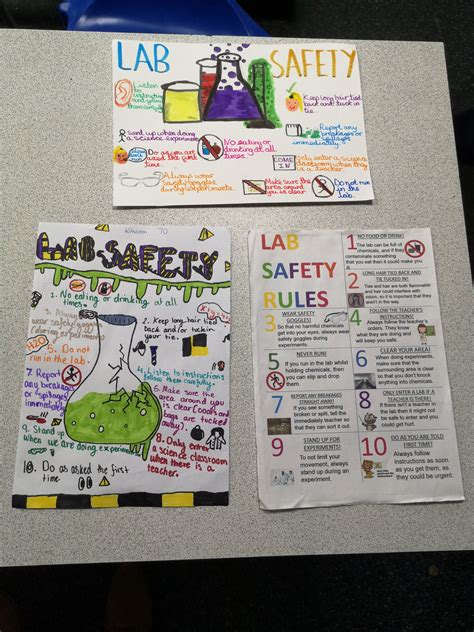 LAB SAFETY
Listen to
instructions
and follow
them carefully.
Keep long hair tied
back and tuck in
tie.
Stand up when doing
a science experiment.
NO eating or
drinking at all
times.
Report any
breakages or
spillages
immediately.
Do as you are
asked the first
time.
COME
IN
Only enter a science
classroom when there
is a teacher.
Always wear
safety goggles
during experiments.
Make sure the
area around
you is clear
Do not run
in the lab.
70
LAB SAFETY
1. No eating or drinking at all
times
3. Always
wear safety goggles
(during experiments)
2. Keep long hair tied
back and tuck in
your tie.
H2O
5. Do not
run in the lab.
4. Listen to instructions
follow them carefully.
7. Report
any breakages
or spillages
immediately
6. Make sure the
area around you
is clear (coats and
bags are tucked
away)
9. Stand up
when we are doing experiments
8. Only enter
a science classroom
when there is a
teacher.
10. Do as asked the first
time
LAB
SAFETY
RULES
1 NO FOOD OR DRINK!
The lab can be full of
chemicals, and if they
contaminate something
that you eat then it could make you
ill
2 LONG HAIR TIED BACK
AND TIE TUCKED IN!
Ties and hair are both flammable
and hair could interfere with
vision, so it is important that they
aren't in the way.
3 WEAR SAFETY
GOGGLES!
So that no harmful chemicals
get into your eyes, always wear
safety goggles during
experiments.
4 FOLLOW THE TEACHERS
INSTRUCTIONS!
Always follow the teacher's
orders. They know what
they are doing and will
keep you safe.
5 NEVER RUN!
If you run in the lab whilst
holding chemicals, then
you can slip and drop
them.
6 CLEAR YOUR AREA!
When doing experiments,
make sure that the
surrounding area is clear
so that you don't knock
anything into chemicals.
7 REPORT ANY BREAKAGES
STRAIGHT AWAY!
If you see something
broken or spilt, tell the
teacher immediately so
they can sort it out
8 ONLY ENTER A LAB IF A
TEACHER IS THERE!
If there isn't a teacher in
the lab then it might not
be safe to enter and you
could get hurt.
9 STAND UP FOR
EXPERIMENTS!
To not limit your
movement, always
stand up during an
experiment.
10 DO AS YOU ARE TOLD
FIRST TIME!
Always follow
instructions as soon
as you get them, as
they could be urgent.